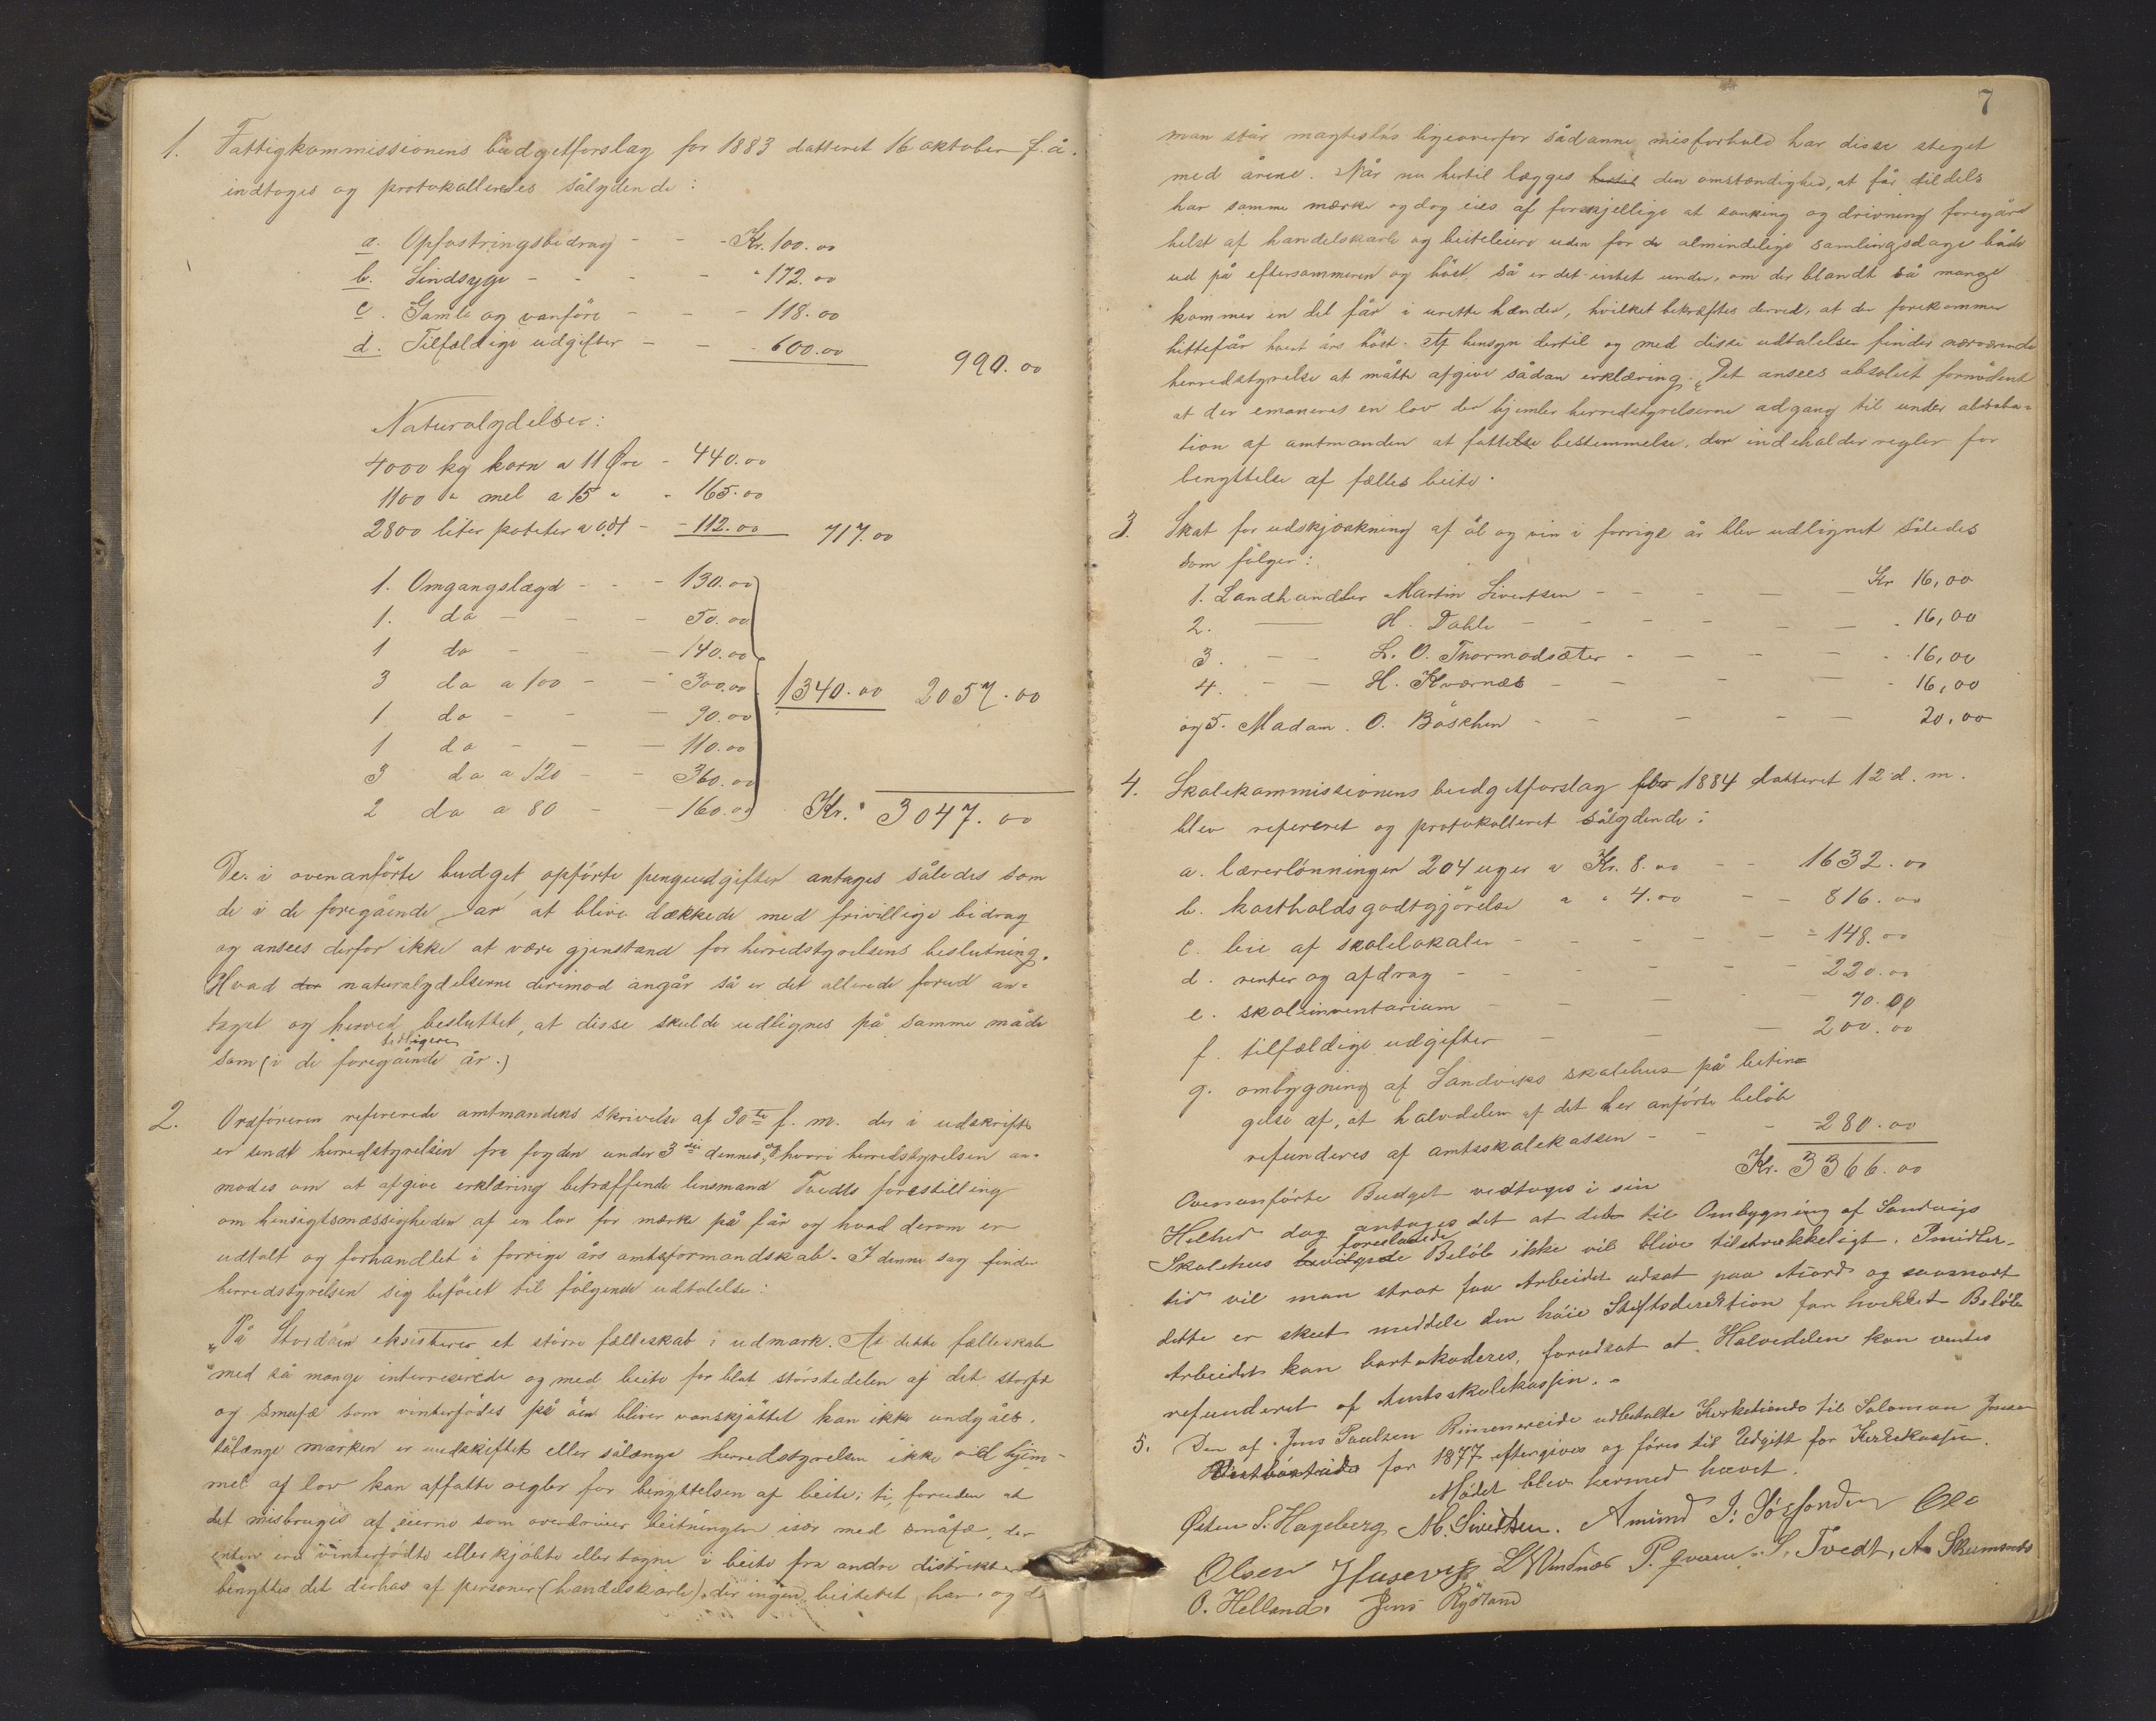 1. Fattigkommissionens budgetforslag for 1883 datteret 16 oktober f. å.
indtoges og protokolleredes sålydende:
a. Opfostringsbidrag - - - Kr. 100.00
b. Sindsyge - - - - " 172.00
c. Gamle og vanføre - - - 118.00
d. Tilfældige udgifter - - - 600.00 990.00
Naturalydelser:
4000 kg korn a 11 Øre - 440.00
1100 " mel a 15 " - 165.00
2800 liter poteter a 0.04 - - 112.00 717.00
1. Omgangslægd - - - 130.00
1. do - - - 50.00
1 do - - - 140.00
3 do a 100 - - 300.00 1340.00 2057.00
1 do - - - 90.00
1 do - - - 110.00
3 do a 120 - - 360.00
2 do a 80 - - 160.00 Kr. 3047.00
De i ovenanførte budget opførte pengeudgifter antages således som
de i de foregående år at blive dækkede med frivillige bidrag
og ansees derfor ikke at være gjenstand for herredstyrelsens beslutning.
Hvad der naturalydelserne derimod angår så er det allerede forud an-
taget og herved besluttet, at disse skulde udlignes på samme måde
tidligere
som (i de foregående år.)
2. Ordføreren refererede amtmandens skrivelse af 30te f. m. der i udskrift
er sendt herredstyrelsen fra fogden under 3die dennes, og hvori herredstyrelsen an-
modes om at afgive erklæring betræffende lensmand Tvedts forestilling
om hensigtsmæssigheden af en lov for mærke på får og hvad derom er
udtalt og forhandlet i forrige års amtsformandskab. I denne sag finder
herredstyrelsen sig beføiet til følgende udtalelse:
"På Stordøen eksisterer et større fælleskab i udmark. At dette fælleskab
med så mange interreserede og med beite for blot størstedelen af det storfæ
og smafæ som vinterfødes på øen bliver vanskjøttet kan ikke undgåes.
sålænge marken er uudskiftet eller sålænge herredstyrelsen ikke ved hjem-
mel af lov kan affatte regler for benyttelsen af beite; ti, foruden at
det misbruges af eierne som overdriver beitningen især med småfæ, der
enten ere vinterfødte eller kjøbte eller tagne i beite fra andre distrikter
benyttes det derhos af personer (handelskarle), der ingen beiteret har, og d
7
man står magtesløs ligeoverfor sådanne misforhold har disse steget
med årene. Når nu hertil lægges hertil den omstændighed, at får tildels
har samme mærke og dog eies af forskjellige at sanking og drivning foregår
helst af handelskarle og beiteleiere uden for de almindelige samlingsdage både
ud på eftersommeren og høst, så er det intet under, om der blandt så mange
kommer en del får i urette hænder, hvilket bekræftes derved, at der forekommer
hittefår hvert års høst. Af hensyn dertil og med disse udtalelser finder nærværende
herredstyrelse at måtte afgive sådan erklæring: "Det ansees absolut fornødent
at der emaneres en lov der hjemler herredstyrelserne adgang til under abroba-
tion af amtmanden at fatte bestemmelse, der indeholder regler for
benyttelse af fælles beite.
3. Skat for udskjænkning af øl og vin i forrige år blev udlignet således
som følger:
1. Landhandler Martin Sivertsen - - - - - Kr 16,00
2. — H. Dahle - - - - - - 16,00
3. — — L. O. Thormodsæter - - - - - 16,00
4. - — H. Kværnæs - - - - - 16,00
og 5. Madam. O. Bøschen - - - - - 20,00
4. Skolekommissionens budgetforslag for 1884 datteret 12 d. m.
blev refereret og protokolleret sålydende:
a. lærerlønninger 204 uger a Kr. 8.00 - - 1632.00
b. kostholdsgodtgjørelse " " 4.00 - - 816.00
c. leie af skolelokaler - - - - - 148.00
d. renter og afdrag - - - - - 220.00
e. skoleinventarium - - - - 70.00
f. tilfældige udgifter - - - 200.00
g. ombygning af Sandviks skolehus på betin-
gelse af, at halvdelen af det her anførte beløb
refunderes af amtsskolekassen - - - 280.00
Kr. 3366.00
Ovenanførte Budget vedtoges i sin
Helhed dog antages det at det til Ombygning af Sandvigs
foreslaaede
Skolehus bevilgede Beløb ikke vil blive tilstrækkeligt. Imidler-
tid vil man strax faa Arbeidet udsat paa Akord og saasnart
dette er skeet meddele den høie Stiftsdirektion for hvilket Beløb
Arbeidet kan bortakorderes, forudsat at Halvdelen kan ventes
refunderet af Amtsskolekassen. -
5. Den af Jens Paulsen Rimmereide udbetalte Kirketiende til Salomon Jensen
for 1877 eftergives og føres til Udgift for Kirkekassen.
Mødet blev hermed hævet.
Østen S. Hageberg M. Sivertsen. Amund J. Ole
Olsen Husevig P. S. Tvedt, A.
O. Helland. Jens